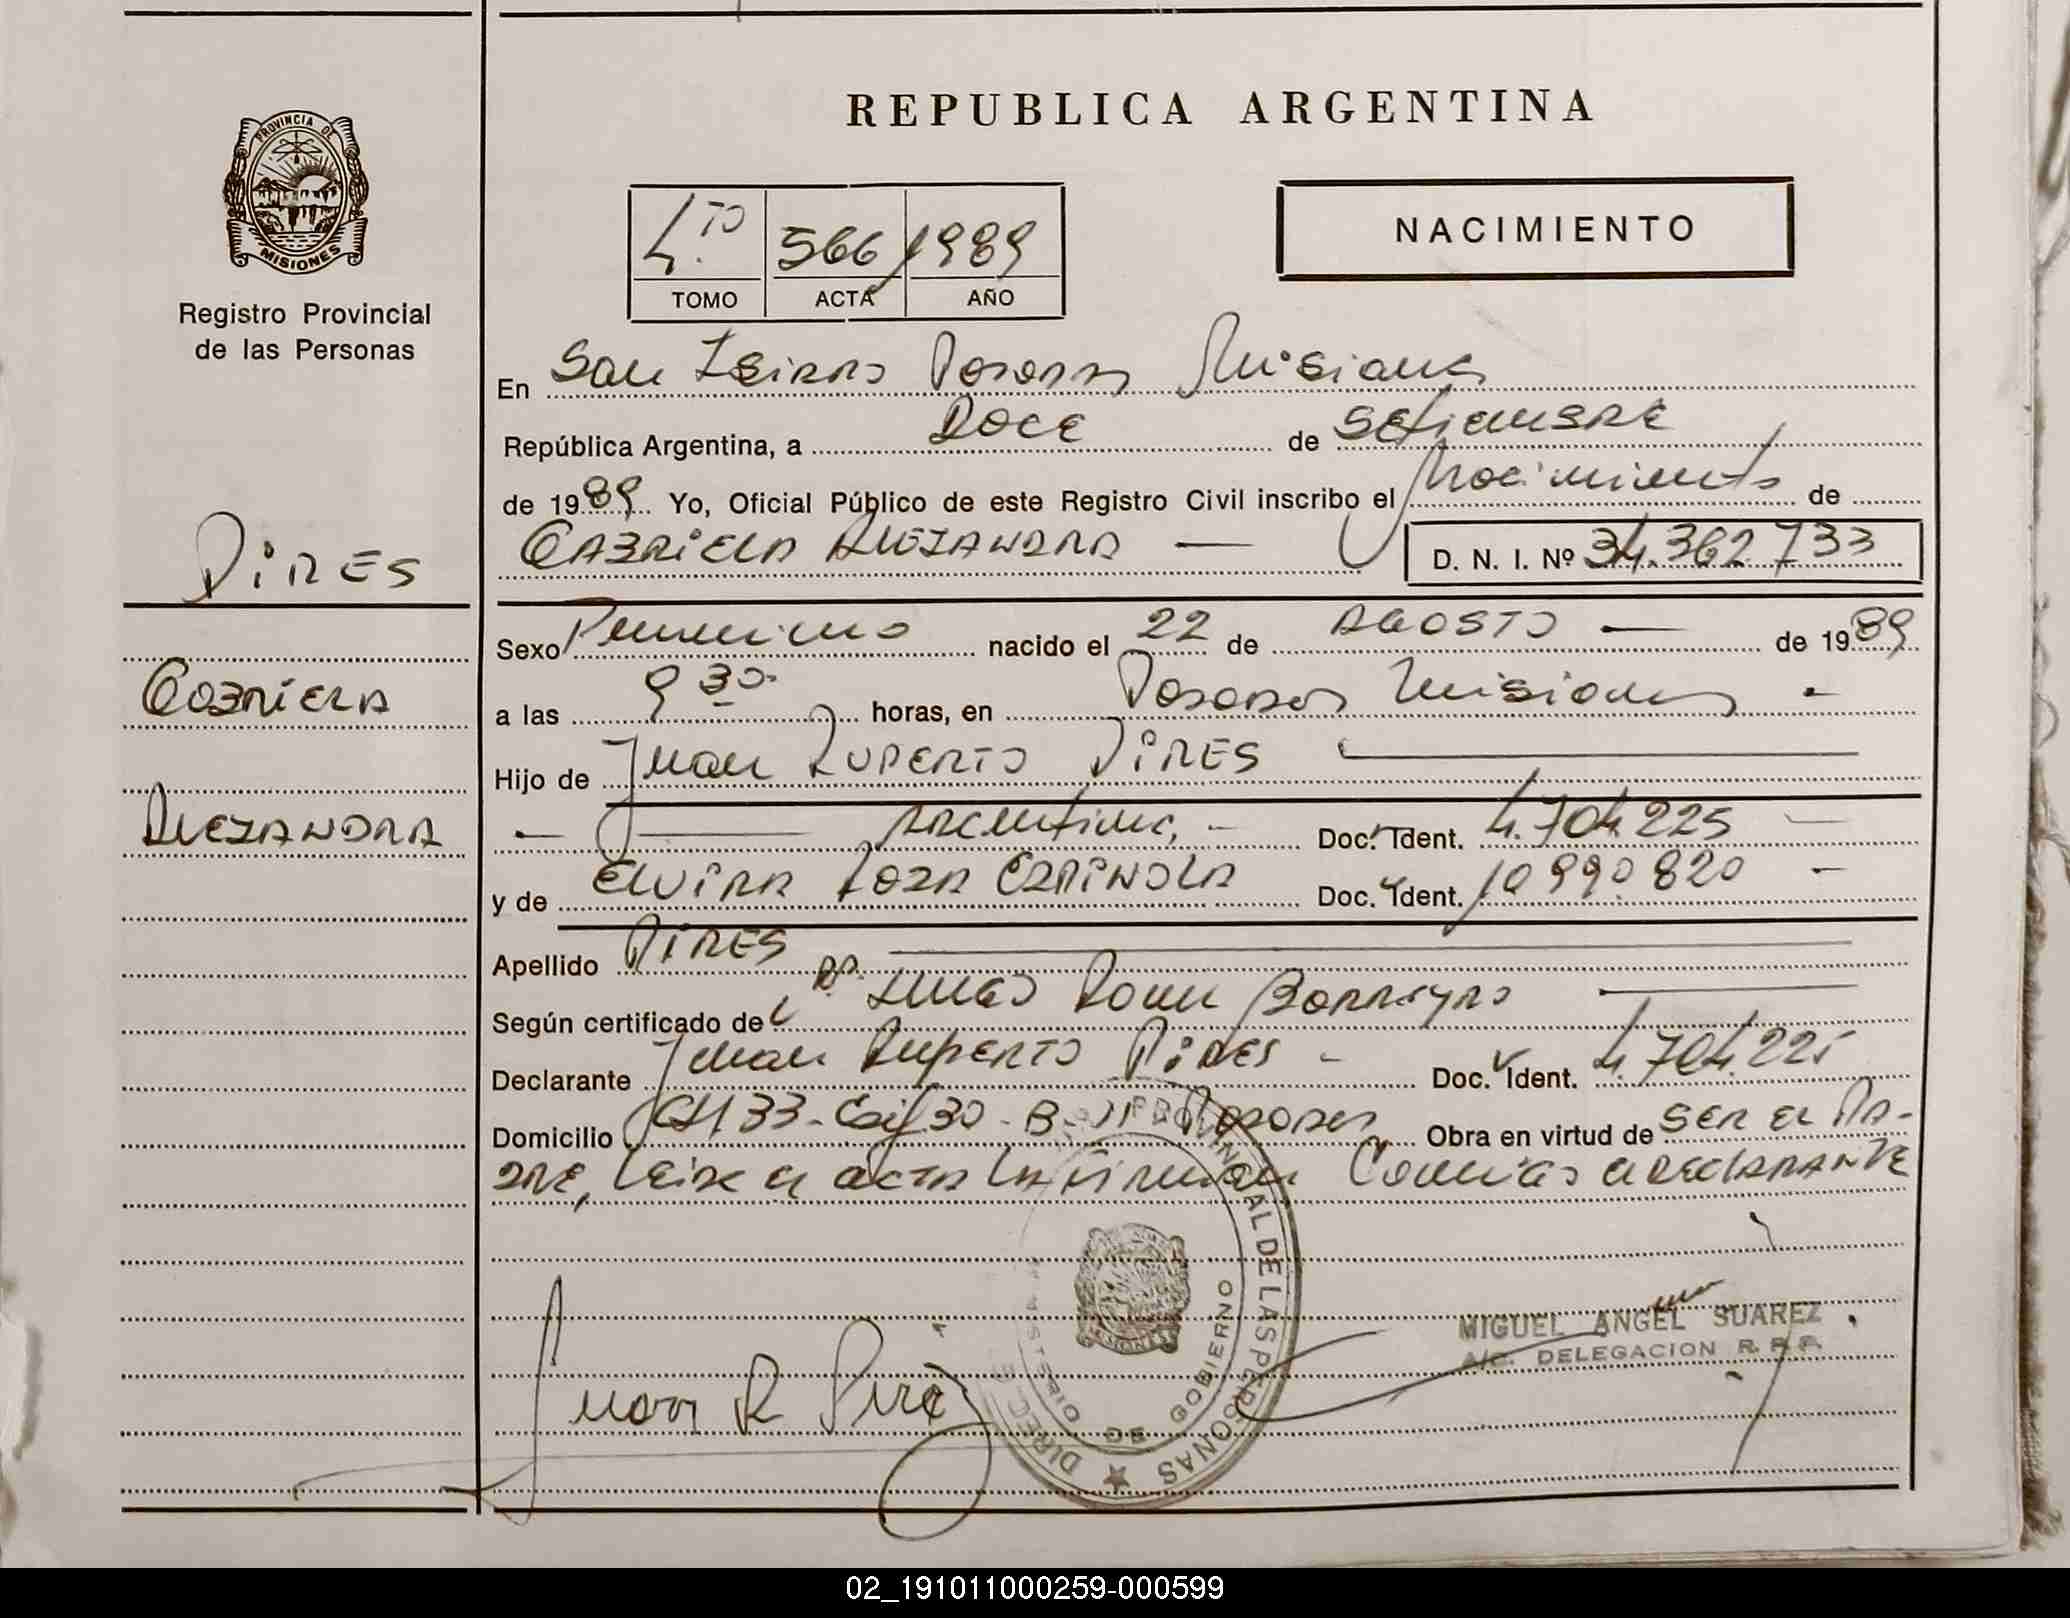 REPUBLICA ARGENTINA
PROVINCIA DE
MISIONES
Registro Provincial
de las Personas
4.TO 566 1989
TOMO ACTA AÑO
NACIMIENTO
En San Isidro Posadas Misiones
República Argentina, a DOCE de Setiembre
de 1989 Yo, Oficial Público de este Registro Civil inscribo el Nacimiento de
GABRIELA ALEJANDRA —
D. N. I. Nº 34.362.733
PIRES
GABRIELA
ALEJANDRA
Sexo Femenino nacido el 22 de AGOSTO — de 1989
a las 9 30 horas, en Posadas Misiones -
Hijo de Juan RUPERTO PIRES —
- — Argentino, - Doc. Ident. 4.704.225 —
y de ELVIRA ROSA ESPINOLA Doc. Ident. 10.990.820 —
Apellido PIRES —
Según certificado de DR. —
Declarante Juan Ruperto PIRES - Doc. Ident. 4.704.225
Domicilio CH 33 - Edif 30 - B- Posadas Obra en virtud de SER EL PA-
DRE, Leida el acta la firman Conmigo el DECLARANTE
Juan R Pires
DIREC PROVINCIAL DE LAS PERSONAS
MINISTERIO DE GOBIERNO
MISIONES
MIGUEL ANGEL SUAREZ
A/C. DELEGACION R. P. P.
02_191011000259-000599